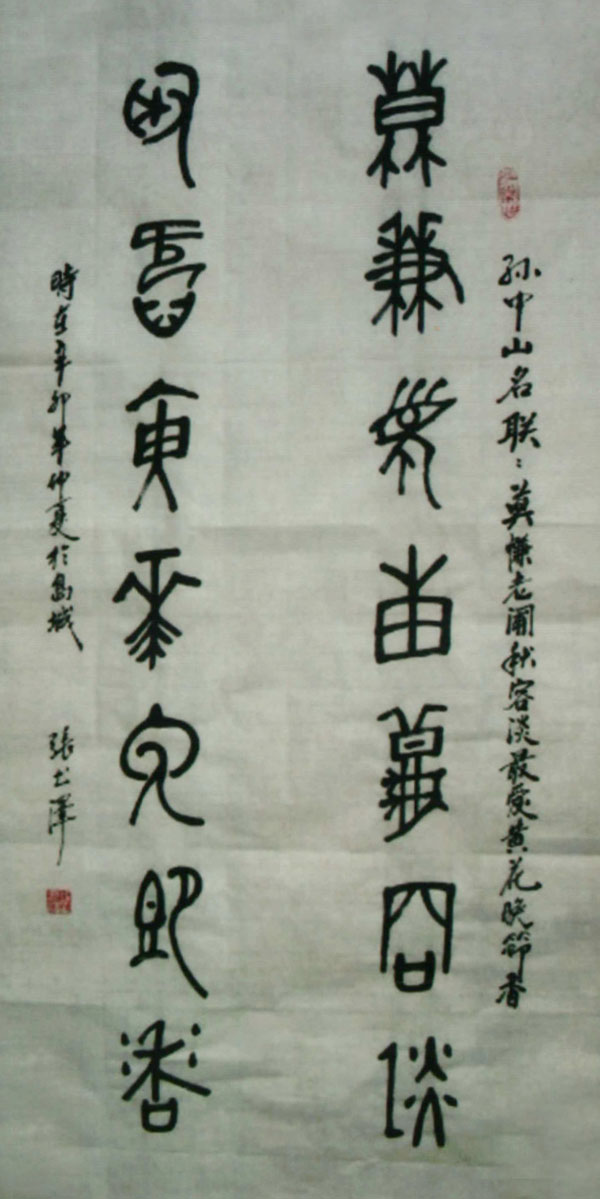 孙中山名联：莫慊老圃秋容淡最爱黄花晚節香
莫兼老甫秋容淡
最愛黄花晚節香
時在辛卯年仲夏於島城